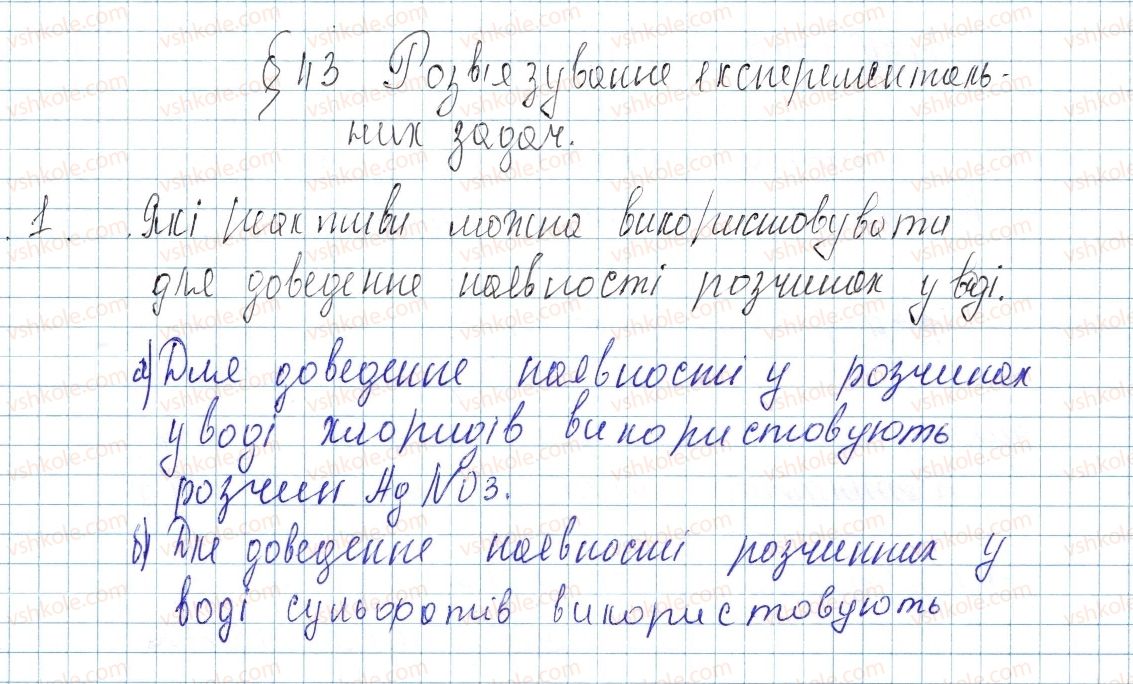 § 43 Розв'язування експеременталь-
них задач.
1. Які реактиви можна використовувати
для доведення наявності розчинах у воді.
а) Для доведення наявності у розчинах
у воді хлоридів використовують
розчин AgNO3.
б) Для доведення наявності розчинних у
воді сульфатів використовують